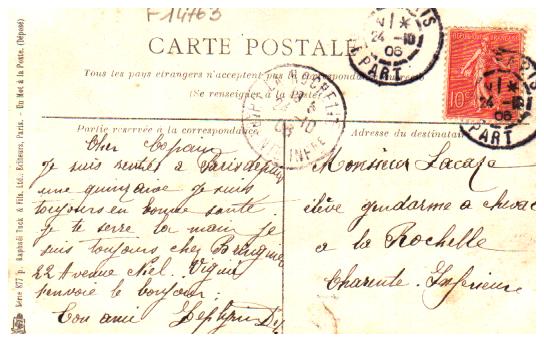 F 14763
CARTE POSTALE
Tous les pays étrangers n'acceptent pas la Correspondance au recto
(Se renseigner à la Poste)
Partie réservée à la correspondance
Adresse du destinataire
Cher Copain
je suis rentré à Paris depuis
une quinzaine je suis
toujours en bonne santé
je te serre la main je
suis toujours chez
22 Avenue Niel.
t'envoie le bonjour
Ton ami Zéphyrin
Monsieur Lacaze
élève gendarme à cheval
à la Rochelle
Charente. Inférieure
Série 877 p. Raphaël Tuck & Fils, Ltd. Editeurs, Paris. - Un Mot à la Poste. (Déposé)
PARIS
24 -10
06
DÉPART
REPUBLIQUE FRANÇAISE
10c
PARIS
24 -10
06
DÉPART
LA ROCHELLE
10
06